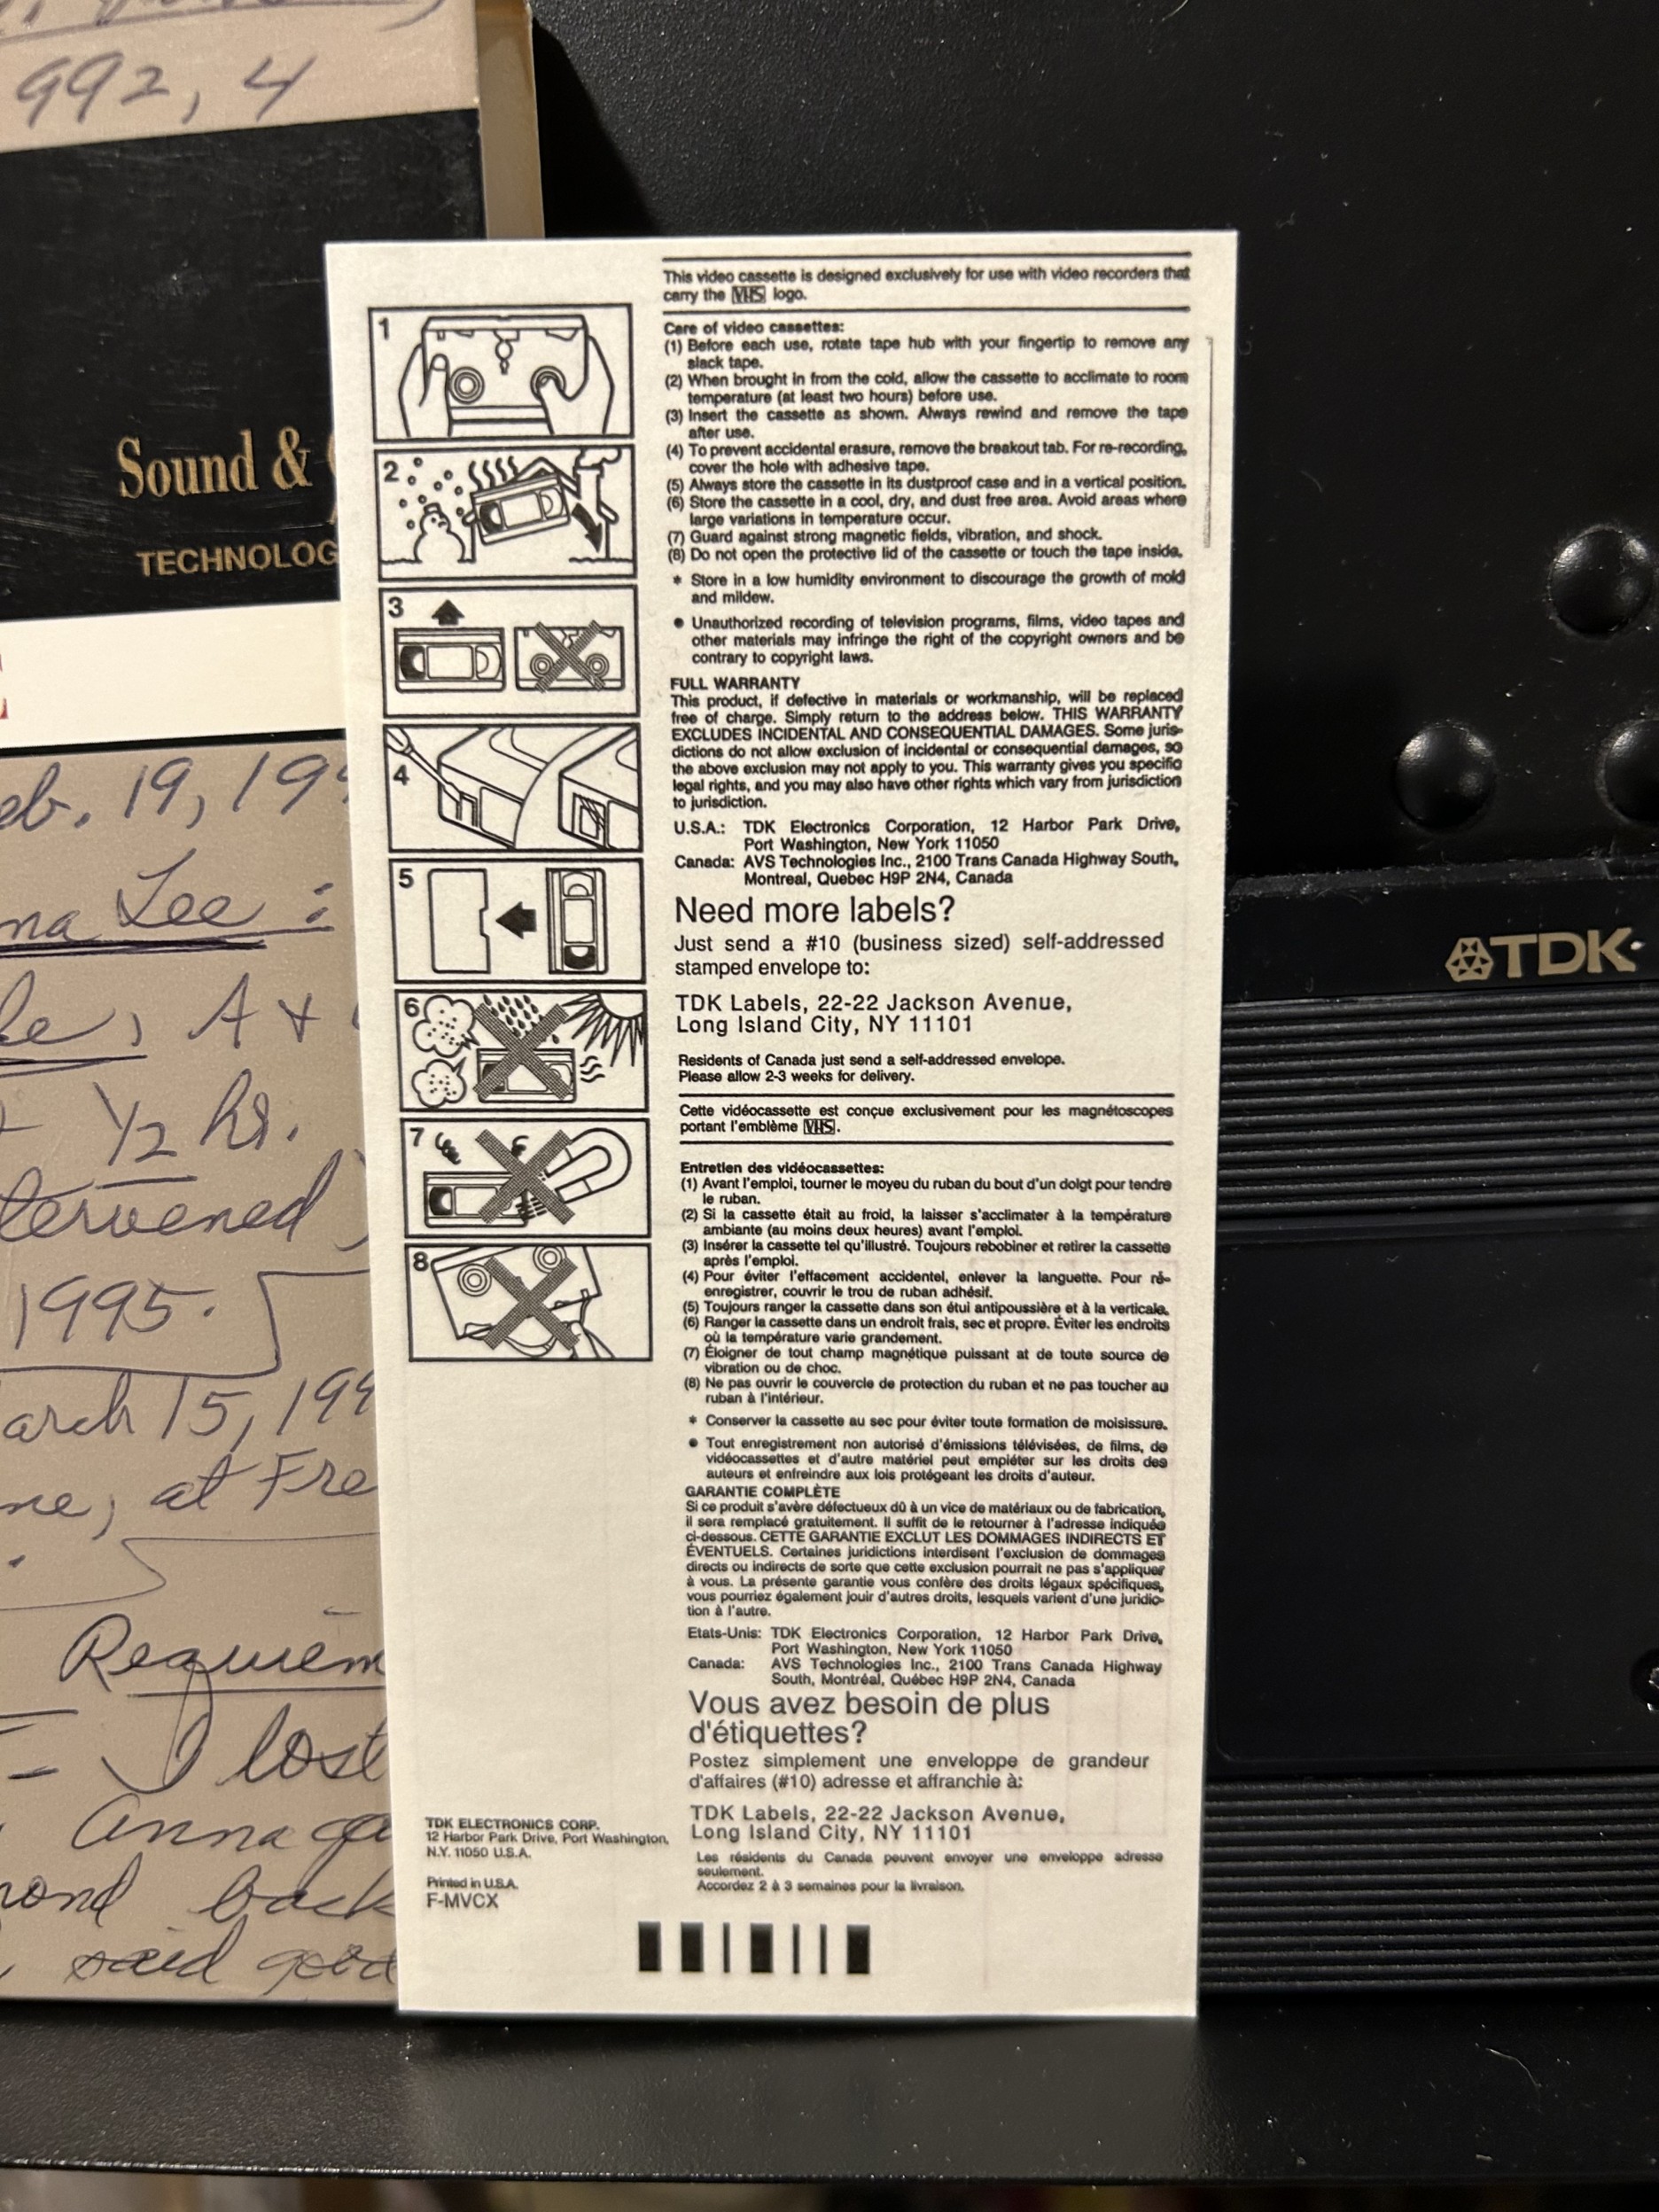 992, 4
Sound &
TECHNOLOG
eb. 19, 199
na Lee :
A +
1/2 hr.
tervened
1995.
arch 15, 199
ne, at Fre
Requiem
I lost
Anna
back
said good
1
2
3
4
5
6
7
8
This video cassette is designed exclusively for use with video recorders that
carry the VHS logo.
Care of video cassettes:
(1) Before each use, rotate tape hub with your fingertip to remove any
slack tape.
(2) When brought in from the cold, allow the cassette to acclimate to room
temperature (at least two hours) before use.
(3) Insert the cassette as shown. Always rewind and remove the tape
after use.
(4) To prevent accidental erasure, remove the breakout tab. For re-recording,
cover the hole with adhesive tape.
(5) Always store the cassette in its dustproof case and in a vertical position.
(6) Store the cassette in a cool, dry, and dust free area. Avoid areas where
large variations in temperature occur.
(7) Guard against strong magnetic fields, vibration, and shock.
(8) Do not open the protective lid of the cassette or touch the tape inside.
* Store in a low humidity environment to discourage the growth of mold
and mildew.
● Unauthorized recording of television programs, films, video tapes and
other materials may infringe the right of the copyright owners and be
contrary to copyright laws.
FULL WARRANTY
This product, if defective in materials or workmanship, will be replaced
free of charge. Simply return to the address below. THIS WARRANTY
EXCLUDES INCIDENTAL AND CONSEQUENTIAL DAMAGES. Some juris-
dictions do not allow exclusion of incidental or consequential damages, so
the above exclusion may not apply to you. This warranty gives you specific
legal rights, and you may also have other rights which vary from jurisdiction
to jurisdiction.
U.S.A.: TDK Electronics Corporation, 12 Harbor Park Drive,
Port Washington, New York 11050
Canada: AVS Technologies Inc., 2100 Trans Canada Highway South,
Montreal, Quebec H9P 2N4, Canada
Need more labels?
Just send a #10 (business sized) self-addressed
stamped envelope to:
TDK Labels, 22-22 Jackson Avenue,
Long Island City, NY 11101
Residents of Canada just send a self-addressed envelope.
Please allow 2-3 weeks for delivery.
Cette vidéocassette est conçue exclusivement pour les magnétoscopes
portant l'emblème VHS.
Entretien des vidéocassettes:
(1) Avant l'emploi, tourner le moyeu du ruban du bout d'un doigt pour tendre
le ruban.
(2) Si la cassette était au froid, la laisser s'acclimater à la température
ambiante (au moins deux heures) avant l'emploi.
(3) Insérer la cassette tel qu'illustré. Toujours rebobiner et retirer la cassette
après l'emploi.
(4) Pour éviter l'effacement accidentel, enlever la languette. Pour ré-
enregistrer, couvrir le trou de ruban adhésif.
(5) Toujours ranger la cassette dans son étui antipoussière et à la verticale.
(6) Ranger la cassette dans un endroit frais, sec et propre. Éviter les endroits
où la température varie grandement.
(7) Éloigner de tout champ magnétique puissant at de toute source de
vibration ou de choc.
(8) Ne pas ouvrir le couvercle de protection du ruban et ne pas toucher au
ruban à l'intérieur.
* Conserver la cassette au sec pour éviter toute formation de moisissure.
● Tout enregistrement non autorisé d'émissions télévisées, de films, de
vidéocassettes et d'autre matériel peut empiéter sur les droits des
auteurs et enfreindre aux lois protégeant les droits d'auteur.
GARANTIE COMPLÈTE
Si ce produit s'avère défectueux dû à un vice de matériaux ou de fabrication,
il sera remplacé gratuitement. Il suffit de le retourner à l'adresse indiquée
ci-dessous. CETTE GARANTIE EXCLUT LES DOMMAGES INDIRECTS ET
ÉVENTUELS. Certaines juridictions interdisent l'exclusion de dommages
directs ou indirects de sorte que cette exclusion pourrait ne pas s'appliquer
à vous. La présente garantie vous confère des droits légaux spécifiques,
vous pourriez également jouir d'autres droits, lesquels varient d'une juridic-
tion à l'autre.
Etats-Unis: TDK Electronics Corporation, 12 Harbor Park Drive,
Port Washington, New York 11050
Canada: AVS Technologies Inc., 2100 Trans Canada Highway
South, Montréal, Québec H9P 2N4, Canada
Vous avez besoin de plus
d'étiquettes?
Postez simplement une enveloppe de grandeur
d'affaires (#10) adresse et affranchie à:
TDK Labels, 22-22 Jackson Avenue,
Long Island City, NY 11101
Les résidents du Canada peuvent envoyer une enveloppe adresse
seulement.
Accordez 2 à 3 semaines pour la livraison.
TDK ELECTRONICS CORP.
12 Harbor Park Drive, Port Washington,
N.Y. 11050 U.S.A.
Printed in U.S.A.
F-MVCX
TDK